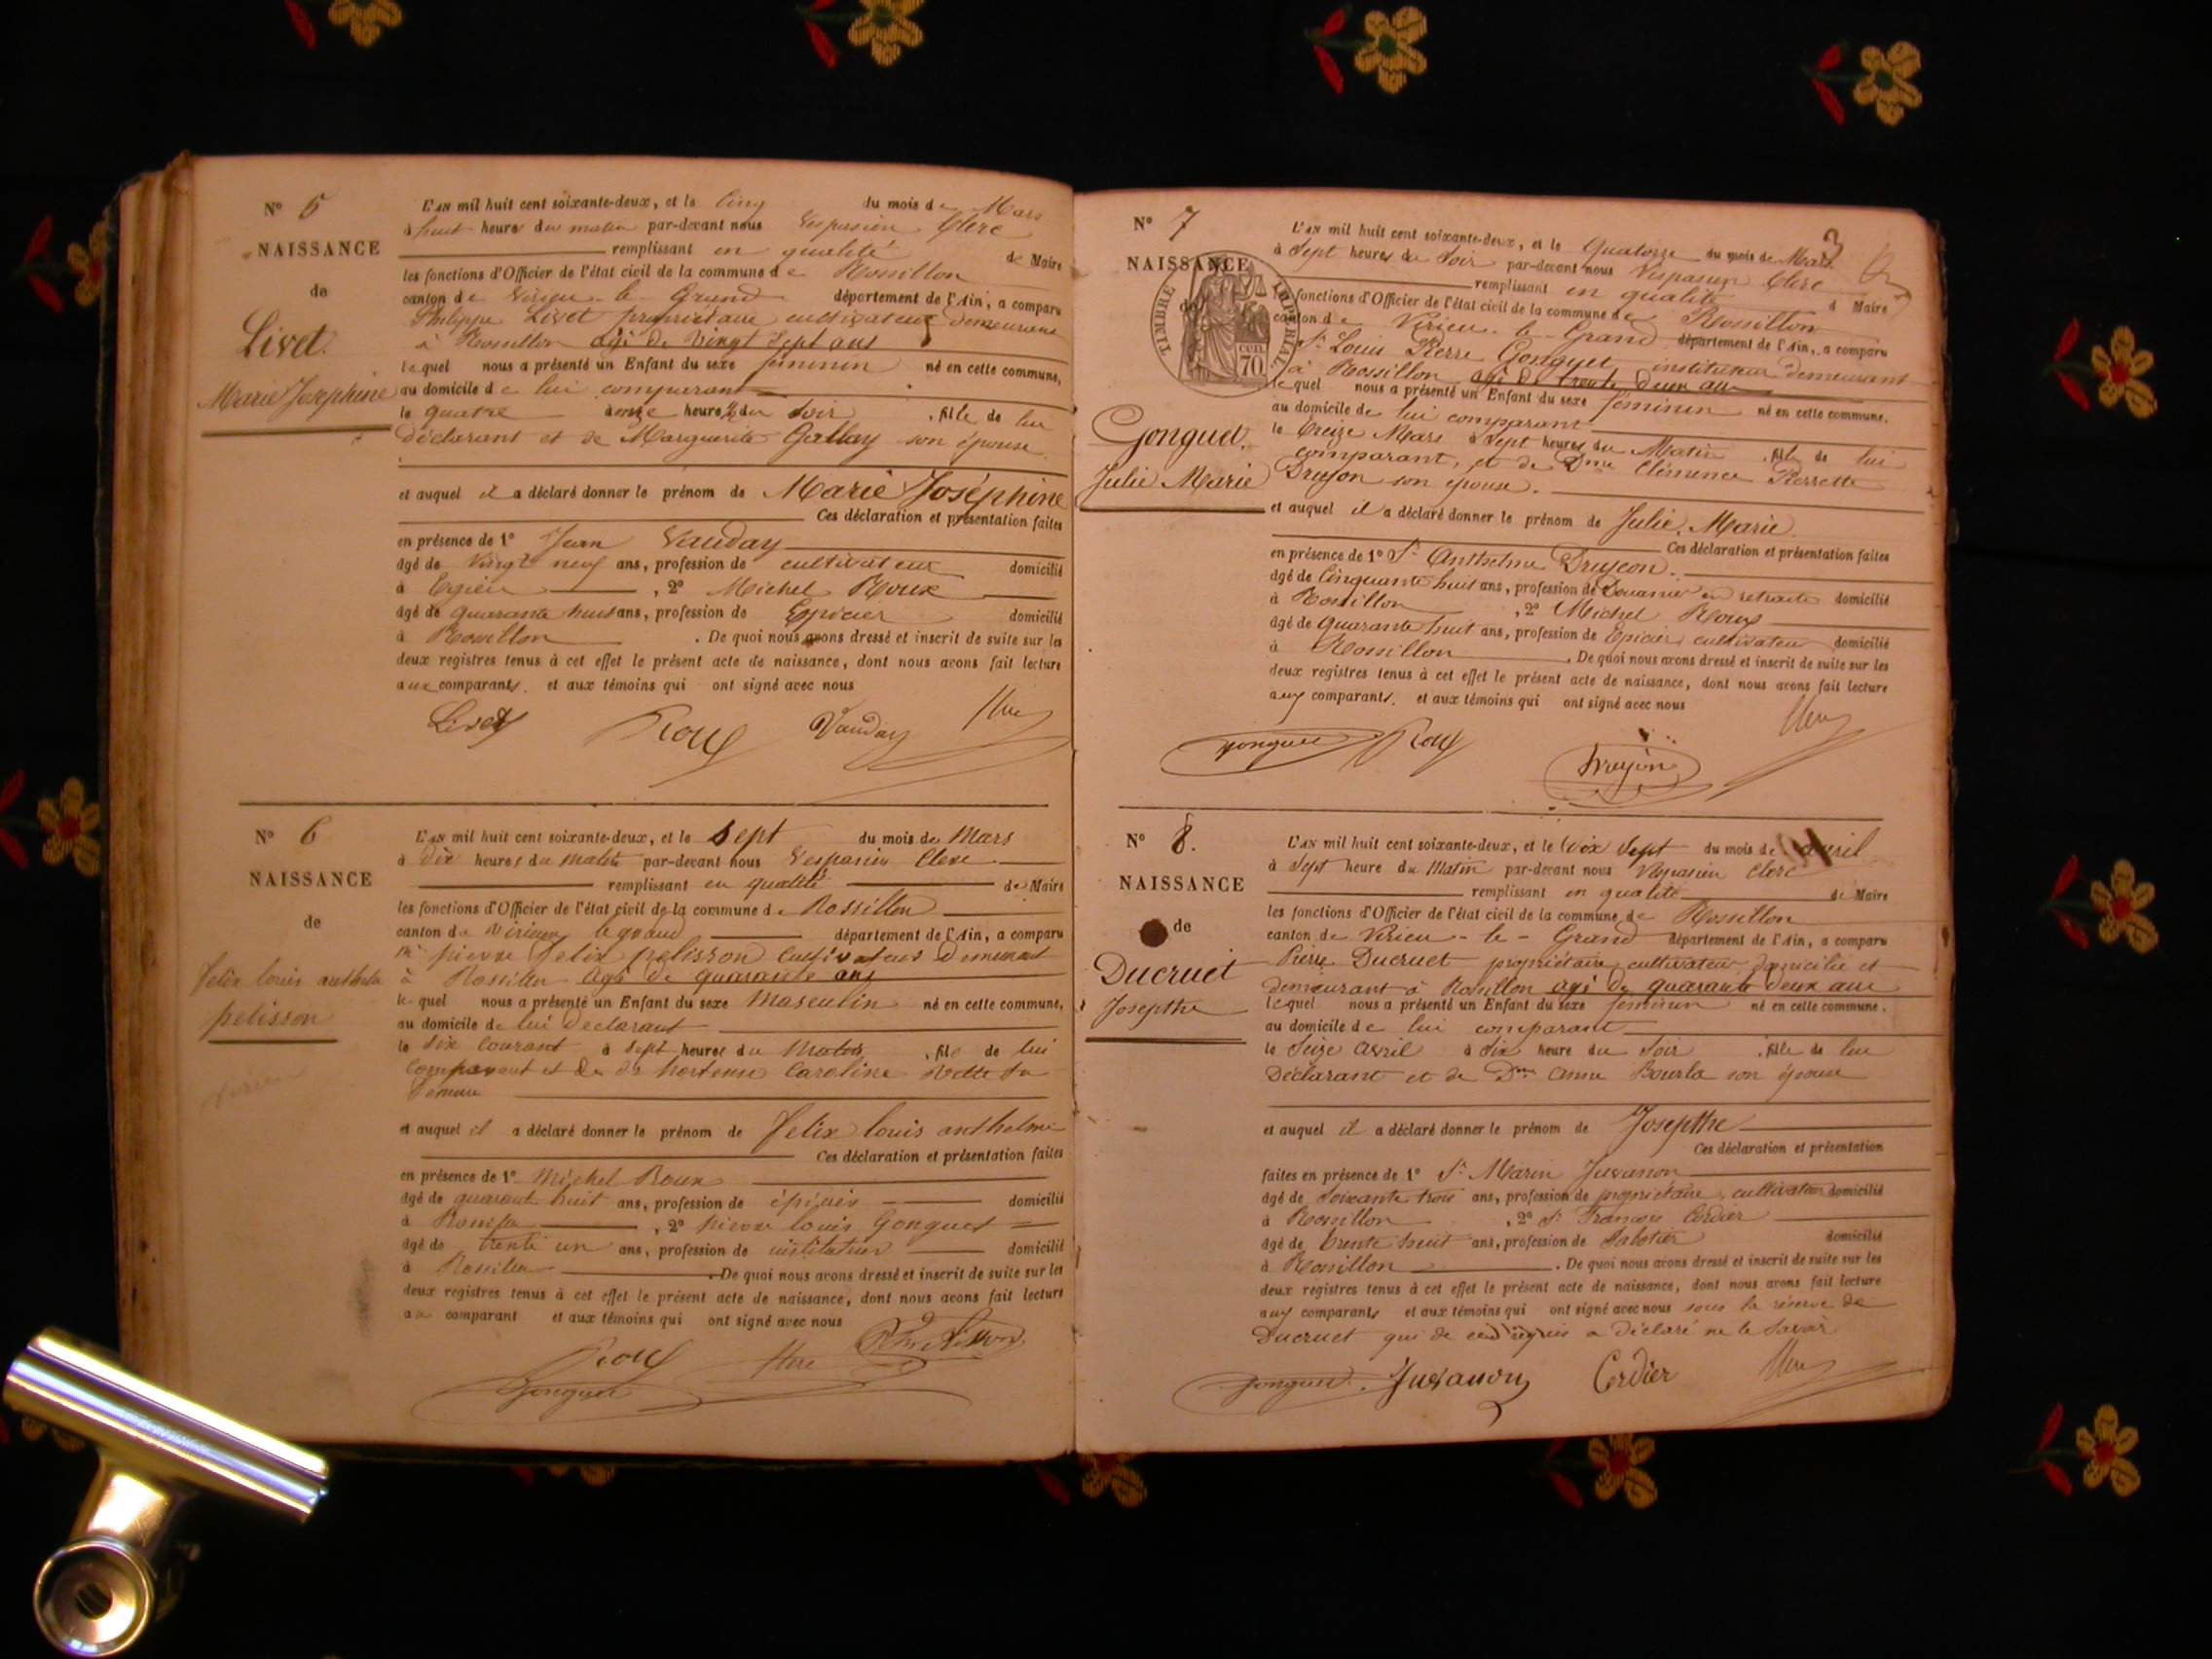 N° 5
NAISSANCE
de
Livet
Marie Joséphine
L'an mil huit cent soixante-deux, et le Cinq du mois de Mars
à huit heure du matin par-devant nous Vespasien Clerc
remplissant en qualité de Maire
les fonctions d'Officier de l'état civil de la commune de Rossillon
canton de Virieu-le-Grand département de l'Ain, a comparu
Philippe Livet propriétaire cultivateur demeurant
à Rossillon agé de vingt sept ans
lequel nous a présenté un Enfant du sexe féminin né en cette commune,
au domicile de lui comparant
le quatre à onze heure ½ du soir, fille de lui
déclarant et de Marguerite Gallay son épouse
et auquel il a déclaré donner le prénom de Marie Joséphine
Ces déclaration et présentation faites
en présence de 1° Jean Vauday
âgé de vingt neuf ans, profession de cultivateur domicilié
à , 2° Michel Roux
âgé de quarante huit ans, profession de Epicier domicilié
à Rossillon. De quoi nous avons dressé et inscrit de suite sur les
deux registres tenus à cet effet le présent acte de naissance, dont nous avons fait lecture
aux comparants. et aux témoins qui ont signé avec nous
Livet Roux Vauday Clerc
N° 6
NAISSANCE
de
felix louis anthelme
pelisson
L'an mil huit cent soixante-deux, et le sept du mois de Mars
à dix heures du matin par-devant nous Vespasien Clerc
remplissant en qualité de Maire
les fonctions d'Officier de l'état civil de la commune de Rossillon
canton de Virieu le grand département de l'Ain, a comparu
mr pierre felix pelisson cultivateur demeurant
à Rossillon agé de quarante ans
lequel nous a présenté un Enfant du sexe masculin né en cette commune,
au domicile de lui déclarant
le six courant à sept heures du matin, fils de lui
comparant et de de hortense Caroline sa
femme
et auquel il a déclaré donner le prénom de felix louis anthelme
Ces déclaration et présentation faites
en présence de 1° Michel Roux
âgé de quarante huit ans, profession de épicier domicilié
à Rossillon, 2° pierre louis Gonguet
âgé de trente un ans, profession de instituteur domicilié
à Rossillon. De quoi nous avons dressé et inscrit de suite sur les
deux registres tenus à cet effet le présent acte de naissance, dont nous avons fait lecture
au comparant et aux témoins qui ont signé avec nous
Roux Clerc
Gonguet
3
N° 7
NAISSANCE
de
TIMBRE IMPÉRIAL
70 cen
Gonguet
Julie Marie
L'an mil huit cent soixante-deux, et le Quatorze du mois de Mars
à Sept heures du Soir par-devant nous Vespasien Clerc
remplissant en qualité de Maire
fonctions d'Officier de l'état civil de la commune de Rossillon
canton de Virieu-le-Grand département de l'Ain, a comparu
Sr Louis Pierre Gonguet instituteur demeurant
à Rossillon agé de trente deux ans
lequel nous a présenté un Enfant du sexe féminin né en cette commune.
au domicile de lui comparant
le treize Mars à Sept heures du Matin, fille de lui
comparant, et de Dme Clémence Pierrette
Drujon son épouse.
et auquel il a déclaré donner le prénom de Julie Marie
Ces déclaration et présentation faites
en présence de 1° Sr Anthelme Drujon.
âgé de Cinquante huit ans, profession de Douanier en retraite domicilié
à Rossillon, 2° Michel Roux
âgé de quarante huit ans, profession de Epicier cultivateur domicilié
à Rossillon. De quoi nous avons dressé et inscrit de suite sur les
deux registres tenus à cet effet le présent acte de naissance, dont nous avons fait lecture
aux comparants. et aux témoins qui ont signé avec nous
Gonguet Roux Drujon Clerc
N° 8.
NAISSANCE
de
Ducruet
Josepthe
L'an mil huit cent soixante-deux, et le dix sept du mois de avril
à sept heure du Matin par-devant nous Vespasien Clerc
remplissant en qualité de Maire
les fonctions d'Officier de l'état civil de la commune de Rossillon
canton de Virieu-le-Grand département de l'Ain, a comparu
Pierre Ducruet propriétaire cultivateur domicilié et
demeurant à Rossillon agé de quarante deux ans
lequel nous a présenté un Enfant du sexe féminin né en cette commune.
au domicile de lui comparant
le Seize avril à dix heure du soir, fille de lui
Déclarant et de Dme anne Bourla son épouse
et auquel il a déclaré donner le prénom de Josepthe
Ces déclaration et présentation
faites en présence de 1° Sr Marin Juvanon
âgé de soixante trois ans, profession de propriétaire, cultivateur domicilié
à Rossillon, 2° Sr François Cordier
âgé de trente huit ans, profession de Sabotier domicilié
à Rossillon. De quoi nous avons dressé et inscrit de suite sur les
deux registres tenus à cet effet le présent acte de naissance, dont nous avons fait lecture
aux comparants et aux témoins qui ont signé avec nous sous la réserve de
Ducruet qui de ce requis a déclaré ne le savoir
Gonguet. Juvanon Cordier Clerc